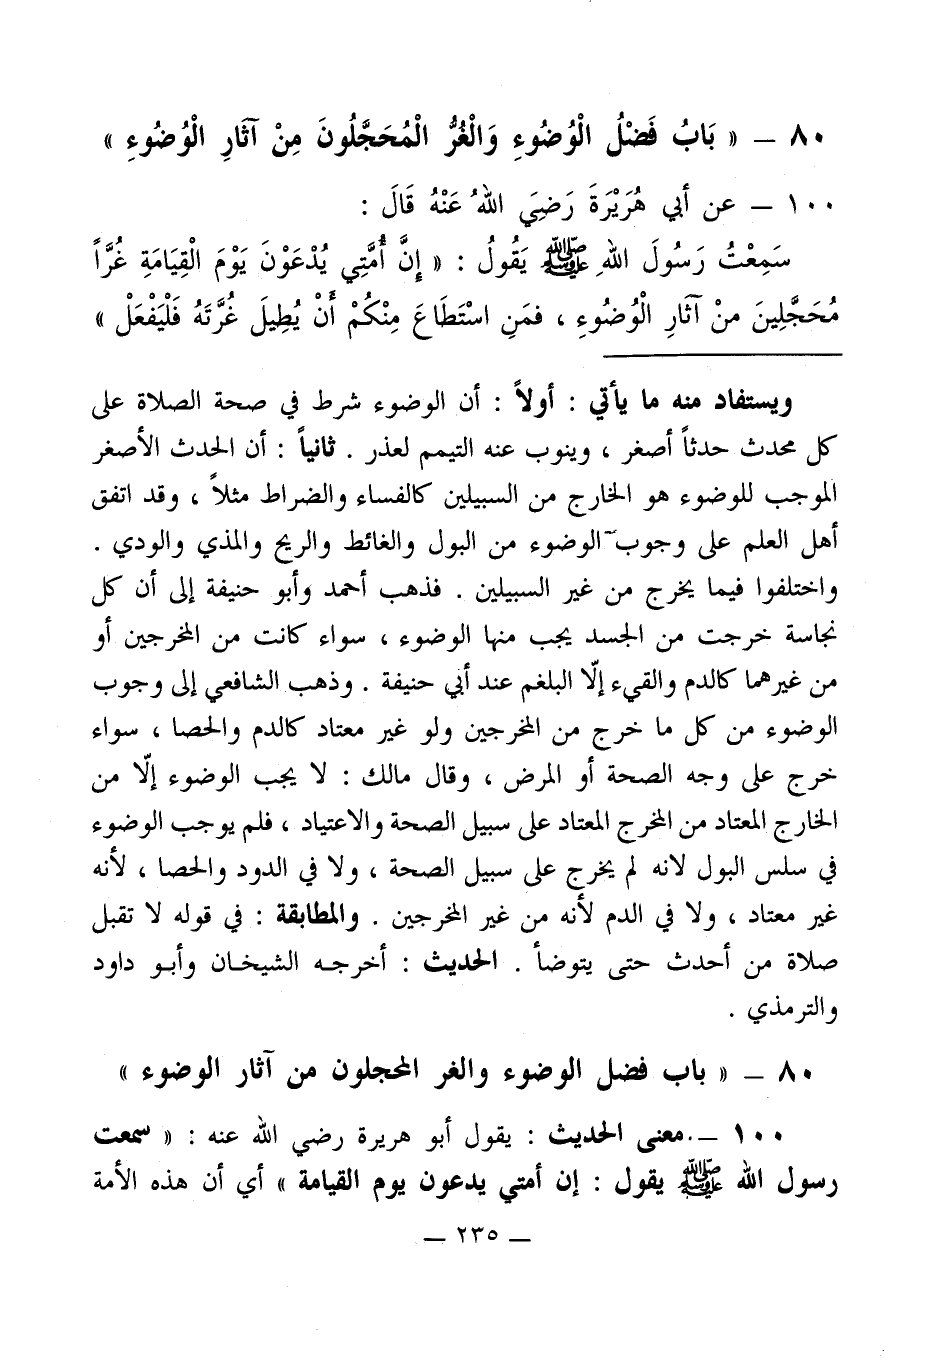 ٨٠ ــ « بَابُ فَضْلُ الْوُضُوءِ وَالْغُرُّ الْمُحَجَّلُونَ مِنْ آثَارِ الْوُضُوءِ »
١٠٠ ــ عن أبي هُرَيْرَةَ رَضِيَ اللهُ عَنْهُ قَالَ :
سَمِعْتُ رَسُولَ اللهِ ﷺ يَقُولُ : « إِنَّ أُمَّتِي يُدْعَوْنَ يَوْمَ الْقِيَامَةِ غُرَّاً
مُحَجَّلِينَ مِنْ آثَارِ الْوُضُوءِ ، فمَنِ اسْتَطَاعَ مِنْكُمْ أَنْ يُطِيلَ غُرَّتَهُ فَلْيَفْعَلْ »
ويستفاد منه ما يأتي : أولاً : أن الوضوء شرط في صحة الصلاة على
كل محدث حدثاً أصغر ، وينوب عنه التيمم لعذر . ثانياً : أن الحدث الأصغر
الموجب للوضوء هو الخارج من السبيلين كالفساء والضراط مثلاً ، وقد اتفق
أهل العلم على وجوب الوضوء من البول والغائط والريح والمذي والودي .
واختلفوا فيما يخرج من غير السبيلين . فذهب أحمد وأبو حنيفة إلى أن كل
نجاسة خرجت من الجسد يجب منها الوضوء ، سواء كانت من المخرجين أو
من غيرهما كالدم والقيء إلّا البلغم عند أبي حنيفة . وذهب الشافعي إلى وجوب
الوضوء من كل ما خرج من المخرجين ولو غير معتاد كالدم والحصا ، سواء
خرج على وجه الصحة أو المرض ، وقال مالك : لا يجب الوضوء إلّا من
الخارج المعتاد من المخرج المعتاد على سبيل الصحة والاعتياد ، فلم يوجب الوضوء
في سلس البول لانه لم يخرج على سبيل الصحة ، ولا في الدود والحصا ، لأنه
غير معتاد ، ولا في الدم لأنه من غير المخرجين . والمطابقة : في قوله لا تقبل
صلاة من أحدث حتى يتوضأ . الحديث : أخرجه الشيخان وأبو داود
والترمذي .
٨٠ ــ « باب فضل الوضوء والغر المحجلون من آثار الوضوء »
١٠٠ ــ معنى الحديث : يقول أبو هريرة رضي الله عنه : « سمعت
رسول الله ﷺ يقول : إن أمتي يدعون يوم القيامة » أي أن هذه الأمة
ــ ٢٣٥ ــ